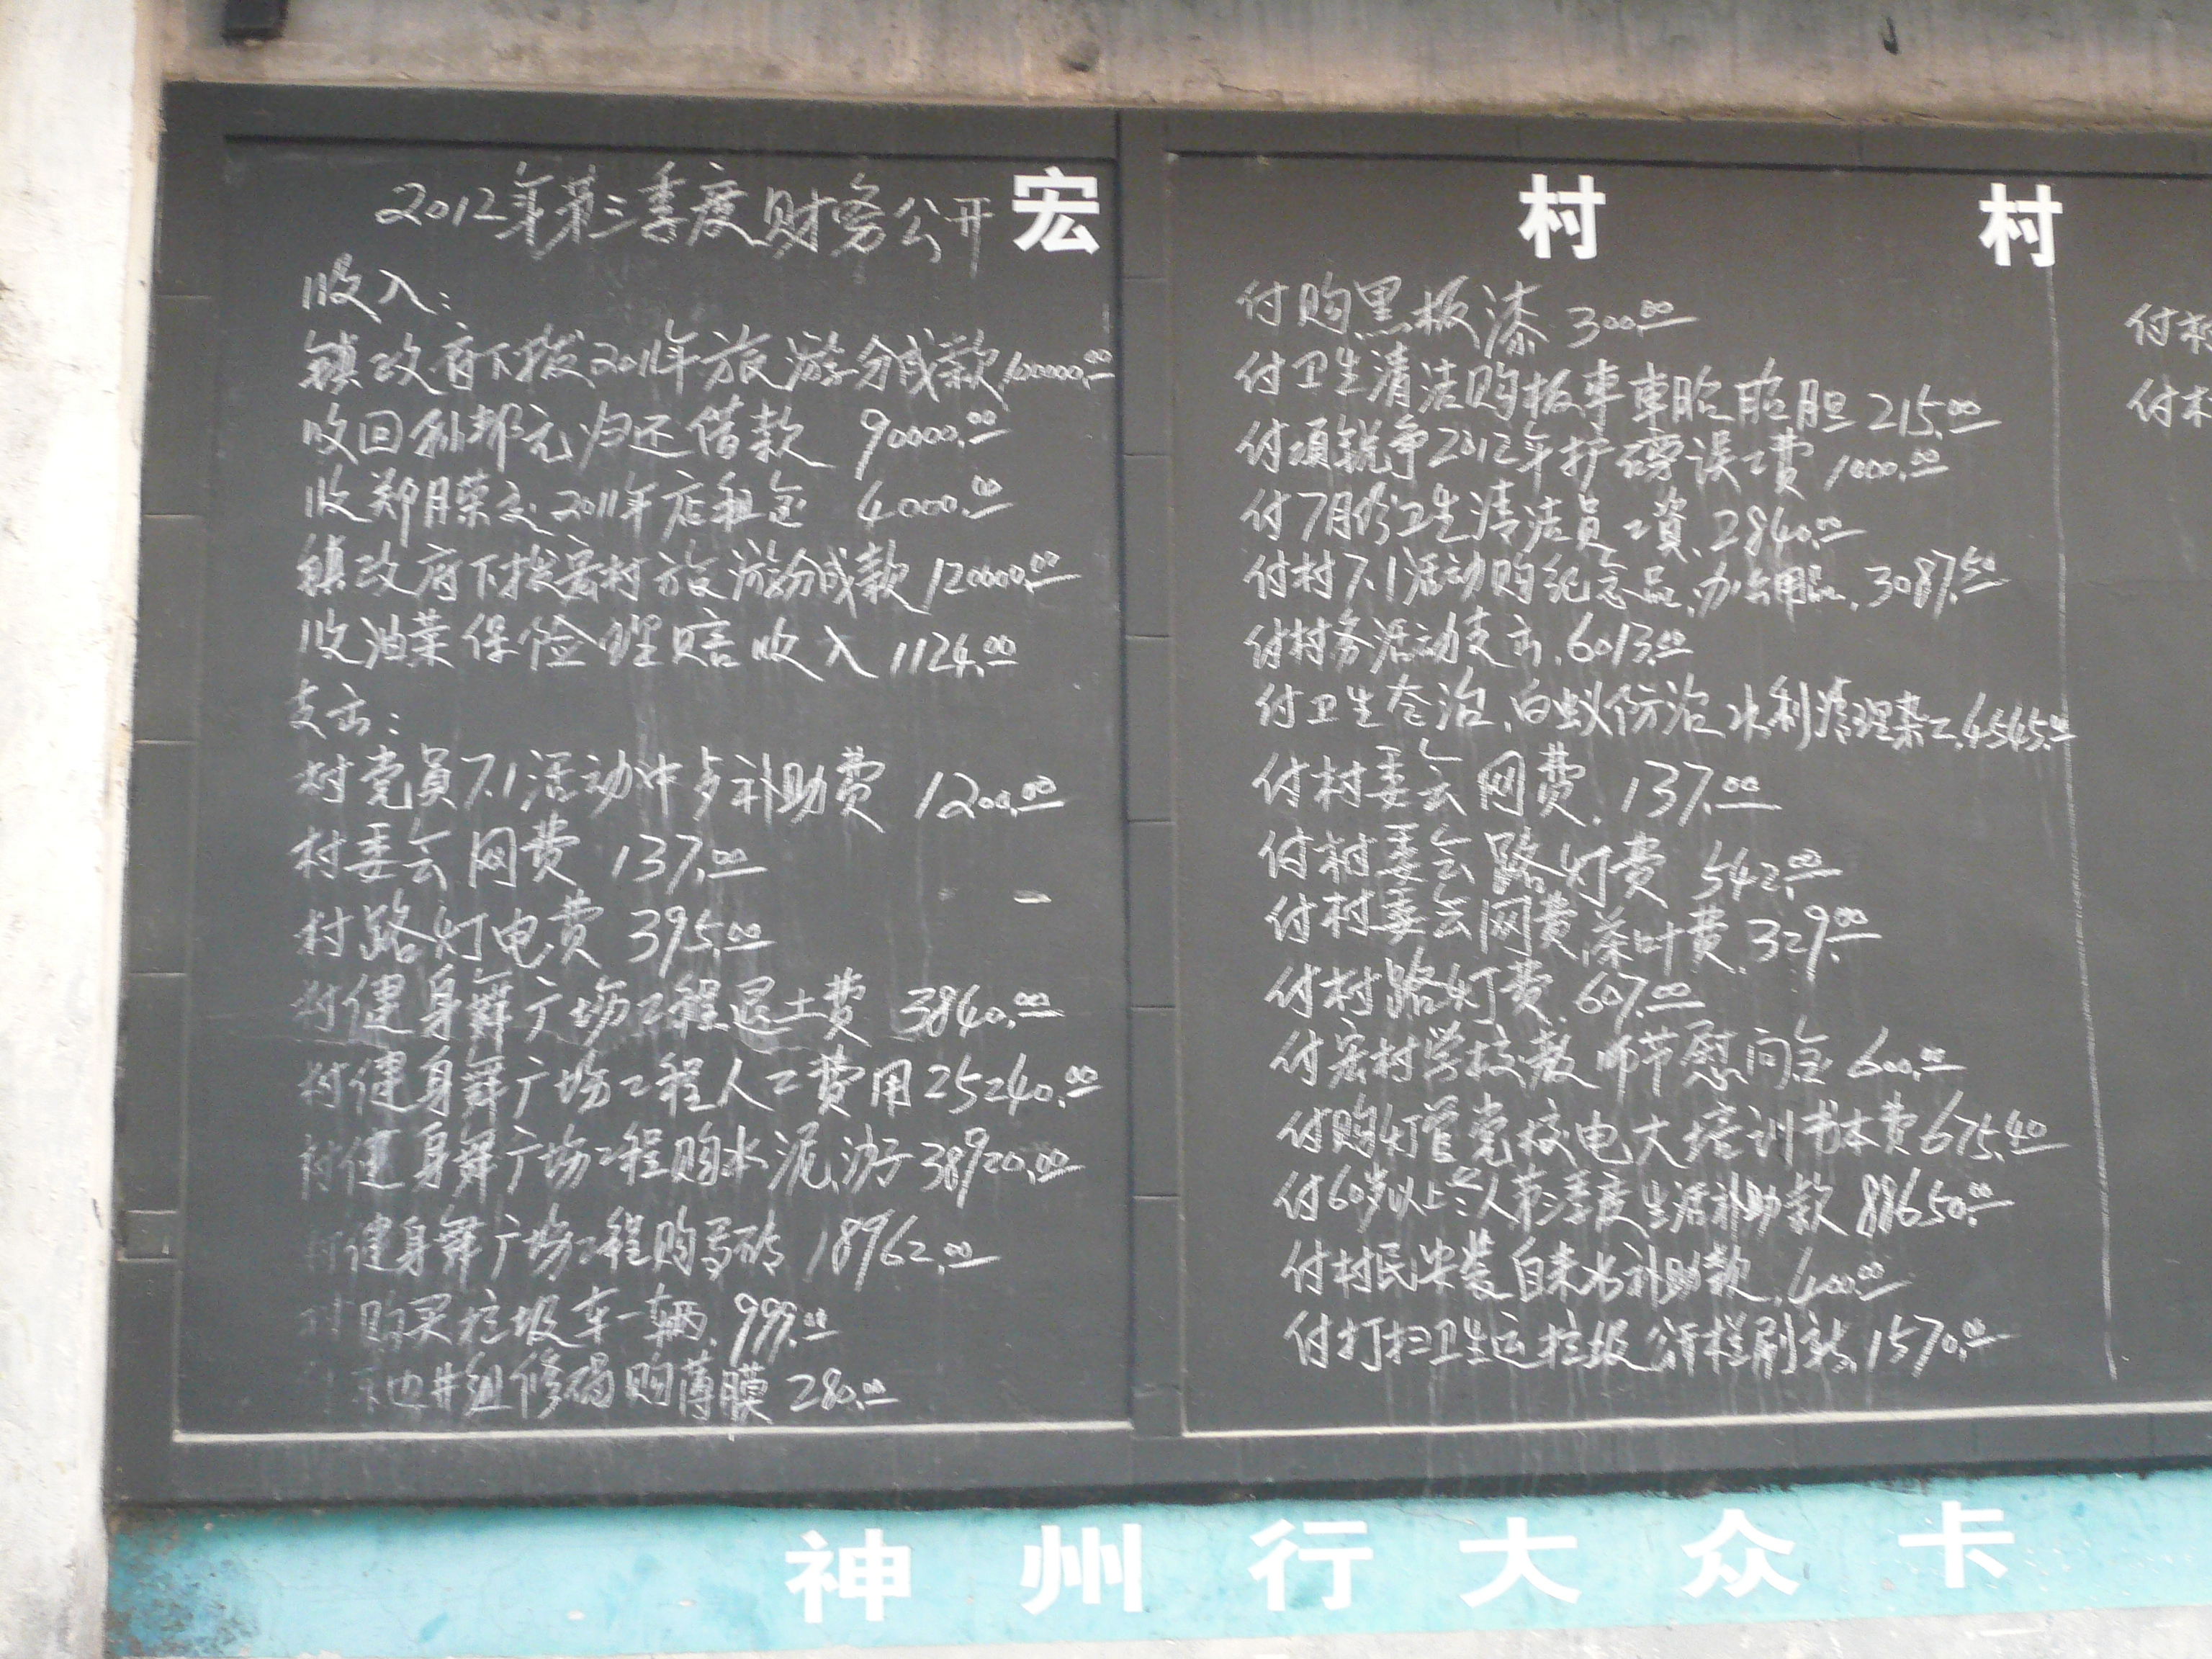 宏 村 村
2012年第三季度财务公开
收入：
镇政府下拨2011年旅游分成款100000.00
收回 还借款 90000.00
收郑月荣交2011年店租金 4000.00
镇政府下拨宏村旅游分成款120000.00
收油菜保险理赔收入1124.00
支出：
村党员7.1活动中歺补助费 1200.00
村委会网费 137.00
村路灯电费 395.00
村健身舞广场工程 土费 3840.00
村健身舞广场工程人工费用25240.00
村健身舞广场工程购水泥、沙子38920.00
村健身舞广场工程购 砖 18962.00
村购买垃圾车一辆.999.00
组修碣购薄膜280.00
付购黑板漆 300.00
付卫生清洁购板車車胎胎胆215.00
付项锐争2012年护 误工费1000.00
付7月份卫生清洁员工資.2840.00
付村7.1活动购纪念品.办公用品.3087.50
付村务活动支出.6013.00
付卫生 治.白蚁份治水利清理杂工.4545.00
付村委会网费.137.00
付村委会路灯费 542.00
付村委会网费.茶叶费.329.00
付村路灯费.607.00
付宏村学校教师节慰问金600.00
付购灯管党校电大培训书本费675.40
付60岁以上老人第三季度生活补助款88650.00
付村民安装自来水补助款.400.00
付打扫卫生运垃圾 栏刷 .1570.00
付村
付村
神州行大众卡